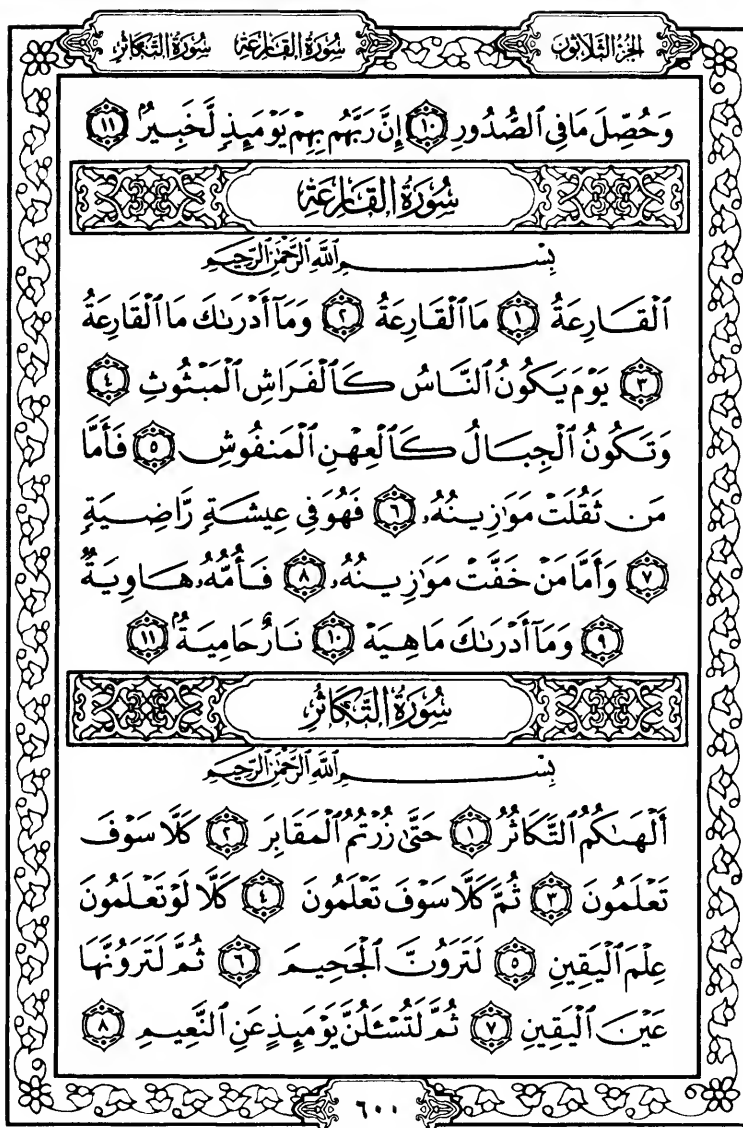 الجزء الثلاثون سورة القارعة سورة التكاثر
وَحُصِّلَ مَا فِي ٱلصُّدُورِ ١٠ إِنَّ رَبَّهُم بِهِمْ يَوْمَئِذٍ لَّخَبِيرٌۢ ١١
سُورَةُ القَارِعَةِ
بِسْمِ ٱللَّهِ ٱلرَّحْمَٰنِ ٱلرَّحِيمِ
ٱلْقَارِعَةُ ١ مَا ٱلْقَارِعَةُ ٢ وَمَآ أَدْرَىٰكَ مَا ٱلْقَارِعَةُ
٣ يَوْمَ يَكُونُ ٱلنَّاسُ كَٱلْفَرَاشِ ٱلْمَبْثُوثِ ٤
وَتَكُونُ ٱلْجِبَالُ كَٱلْعِهْنِ ٱلْمَنفُوشِ ٥ فَأَمَّا
مَن ثَقُلَتْ مَوَٰزِينُهُۥ ٦ فَهُوَ فِي عِيشَةٍ رَّاضِيَةٍ
٧ وَأَمَّا مَنْ خَفَّتْ مَوَٰزِينُهُۥ ٨ فَأُمُّهُۥ هَاوِيَةٌ
٩ وَمَآ أَدْرَىٰكَ مَا هِيَهْ ١٠ نَارٌ حَامِيَةٌۢ ١١
سُورَةُ التَّكَاثُرِ
بِسْمِ ٱللَّهِ ٱلرَّحْمَٰنِ ٱلرَّحِيمِ
أَلْهَىٰكُمُ ٱلتَّكَاثُرُ ١ حَتَّىٰ زُرْتُمُ ٱلْمَقَابِرَ ٢ كَلَّا سَوْفَ
تَعْلَمُونَ ٣ ثُمَّ كَلَّا سَوْفَ تَعْلَمُونَ ٤ كَلَّا لَوْ تَعْلَمُونَ
عِلْمَ ٱلْيَقِينِ ٥ لَتَرَوُنَّ ٱلْجَحِيمَ ٦ ثُمَّ لَتَرَوُنَّهَا
عَيْنَ ٱلْيَقِينِ ٧ ثُمَّ لَتُسْـَٔلُنَّ يَوْمَئِذٍ عَنِ ٱلنَّعِيمِ ٨
٦٠٠